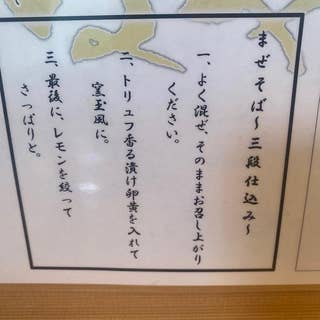 まぜそば～三段仕込み～
一、よく混ぜ、そのままお召し上がり
ください。
二、トリュフ香る漬け卵黄を入れて
窯玉風に。
三、最後に、レモンを絞って
さっぱりと。